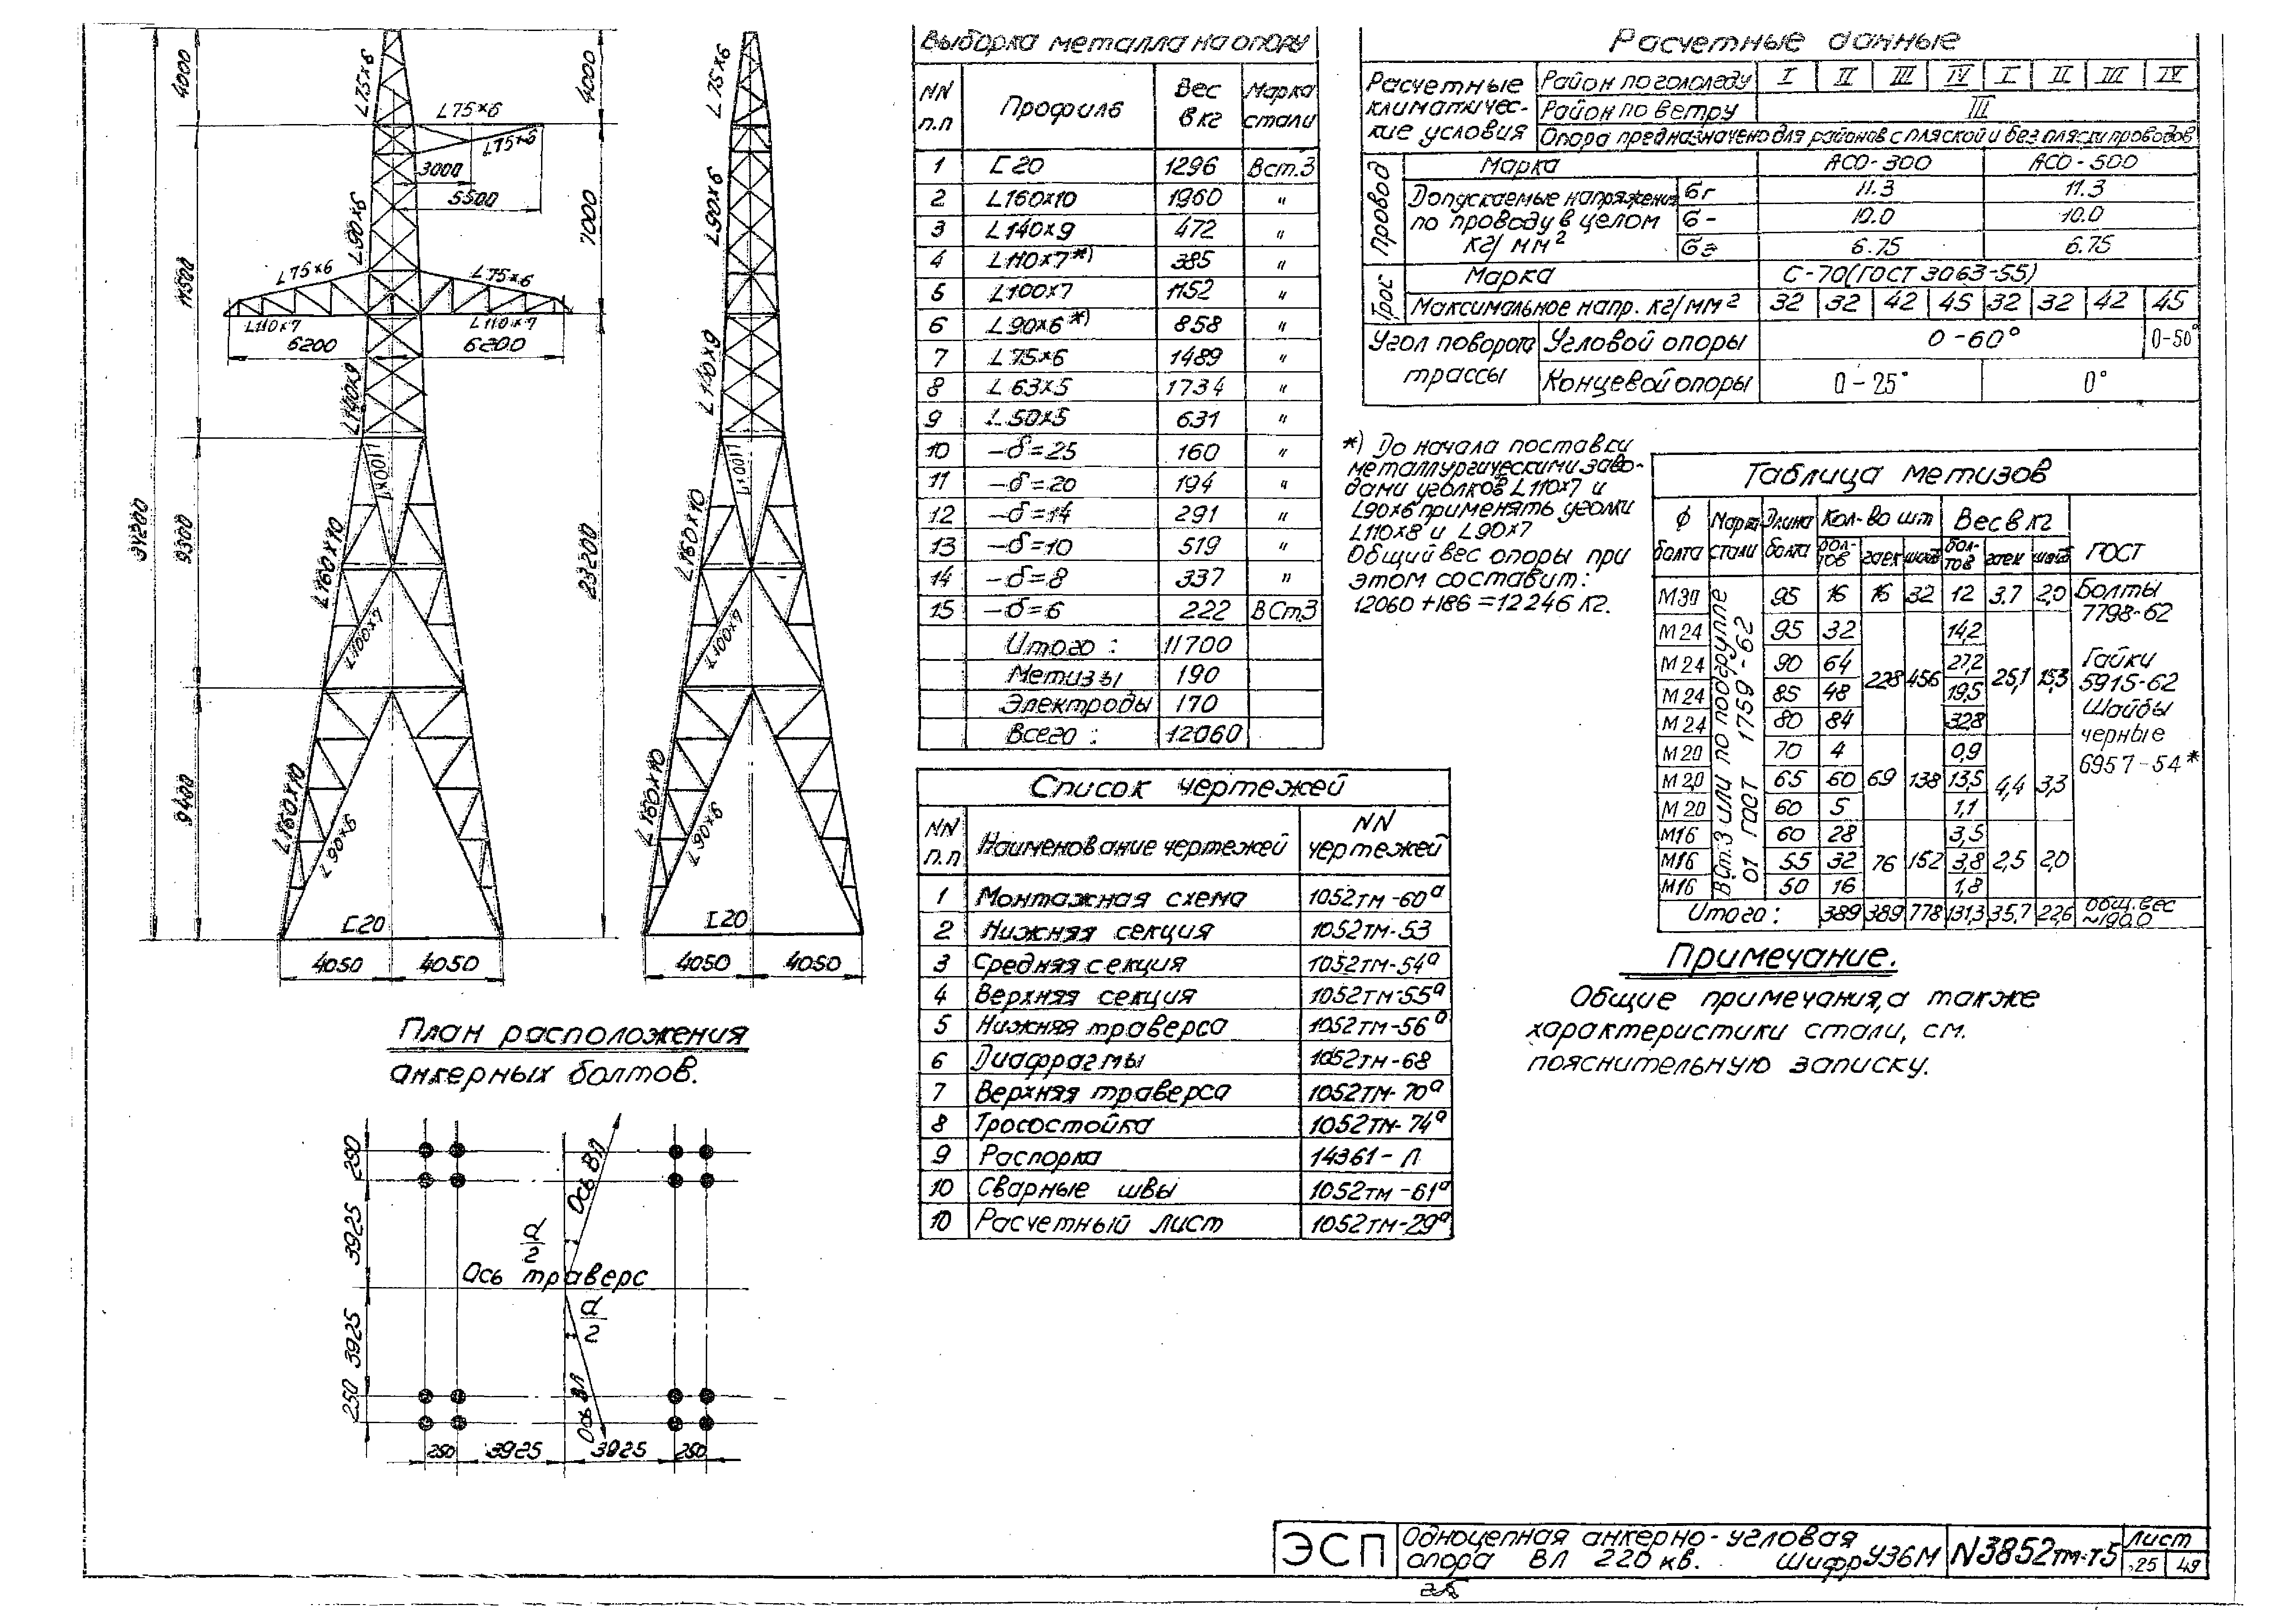 4000
11500
9300
9400
34200
4000
7000
23200
L75×6
L75×6
L75×6
3000
5500
L90×6
L75×6
L75×6
L110×7
L110×7
6200
6200
L140×9
L100×7
L160×10
L100×7
L160×10
L90×6
[20
4050
4050
L75×6
L90×6
L140×9
L100×7
L160×10
L160×10
L90×6
4050
4050
План расположения
анкерных болтов.
250
3925
3925
250
Ось ВЛ
α/2
Ось траверс
α/2
Ось ВЛ
250 3925 3925 250
Выборка металла на опору
NN п.п Профиль Вес в кг Марка стали
1 [20 1296 Вст.3
2 L160×10 1960 "
3 L140×9 472 "
4 L110×7*) 385 "
5 L100×7 1152 "
6 L90×6*) 858 "
7 L75×6 1489 "
8 L63×5 1734 "
9 L50×5 631 "
10 —δ=25 160 "
11 —δ=20 194 "
12 —δ=14 291 "
13 —δ=10 519 "
14 —δ=8 337 "
15 —δ=6 222 ВСт3
Итого : 11700
Метизы 190
Электроды 170
Всего : 12060
Список чертежей
NN п.п Наименование чертежей NN чертежей
1 Монтажная схема 1052тм-60а
2 Нижняя секция 1052тм-53
3 Средняя секция 1052тм-54а
4 Верхняя секция 1052тм-55а
5 Нижняя траверса 1052тм-56а
6 Диафрагмы 1052тм-68
7 Верхняя траверса 1052тм-70а
8 Тросостойка 1052тм-74а
9 Распорка 14361-Л
10 Сварные швы 1052тм-61а
10 Расчетный лист 1052тм-29а
Расчетные данные
Расчетные климатичес-кие условия
Район по гололеду I II III IV I II III IV
Район по ветру III
Опора предназначено для районов с пляской и без пляски проводов
Провод Марка АСО-300 АСО-500
Допускаемые напряжения по проводу в целом кг/мм²
бг 11.3 11.3
б- 10.0 10.0
бэ 6.75 6.75
Трос Марка С-70(ГОСТ 3063-55)
Максимальное напр. кг/мм² 32 32 42 45 32 32 42 45
Угол поворота трассы
Угловой опоры 0-60° 0-50°
Концевой опоры 0-25° 0°
*) До начала поставки
металлургическими заво-
дами уголков L110×7 и
L90×6 применять уголки
L110×8 и L90×7
Общий вес опоры при
этом составит:
12060+186=12246 кг.
Таблица метизов
ф болта Марка стали Длина болта Кол-во шт Вес в кг ГОСТ
бол-тов гаек шайб бол-тов гаек шайб
Вст.3 или по подгруппе 01 ГОСТ 1759-62
М30 95 16 16 32 12 3.7 2,0
М24 95 32 14,2
М24 90 64 228 456 27,2 25,1 15,3
М24 85 48 19,5
М24 80 84 32,8
М20 70 4 0,9
М20 65 60 69 138 13,5 4,4 3,3
М20 60 5 1,1
М16 60 28 3,5
М16 55 32 76 152 3,8 2,5 2,0
М16 50 16 1,8
Болты
7798-62
Гайки
5915-62
Шайбы
черные
6957-54*
Итого: 389 389 778 131,3 35,7 22,6 общ. вес ~190,0
Примечание.
Общие примечания, а также
характеристики стали, см.
пояснительную записку.
ЭСП
Одноцепная анкерно-угловая
опора ВЛ 220 кв. Шифр У36М
N3852тм-т5
Лист
25 49